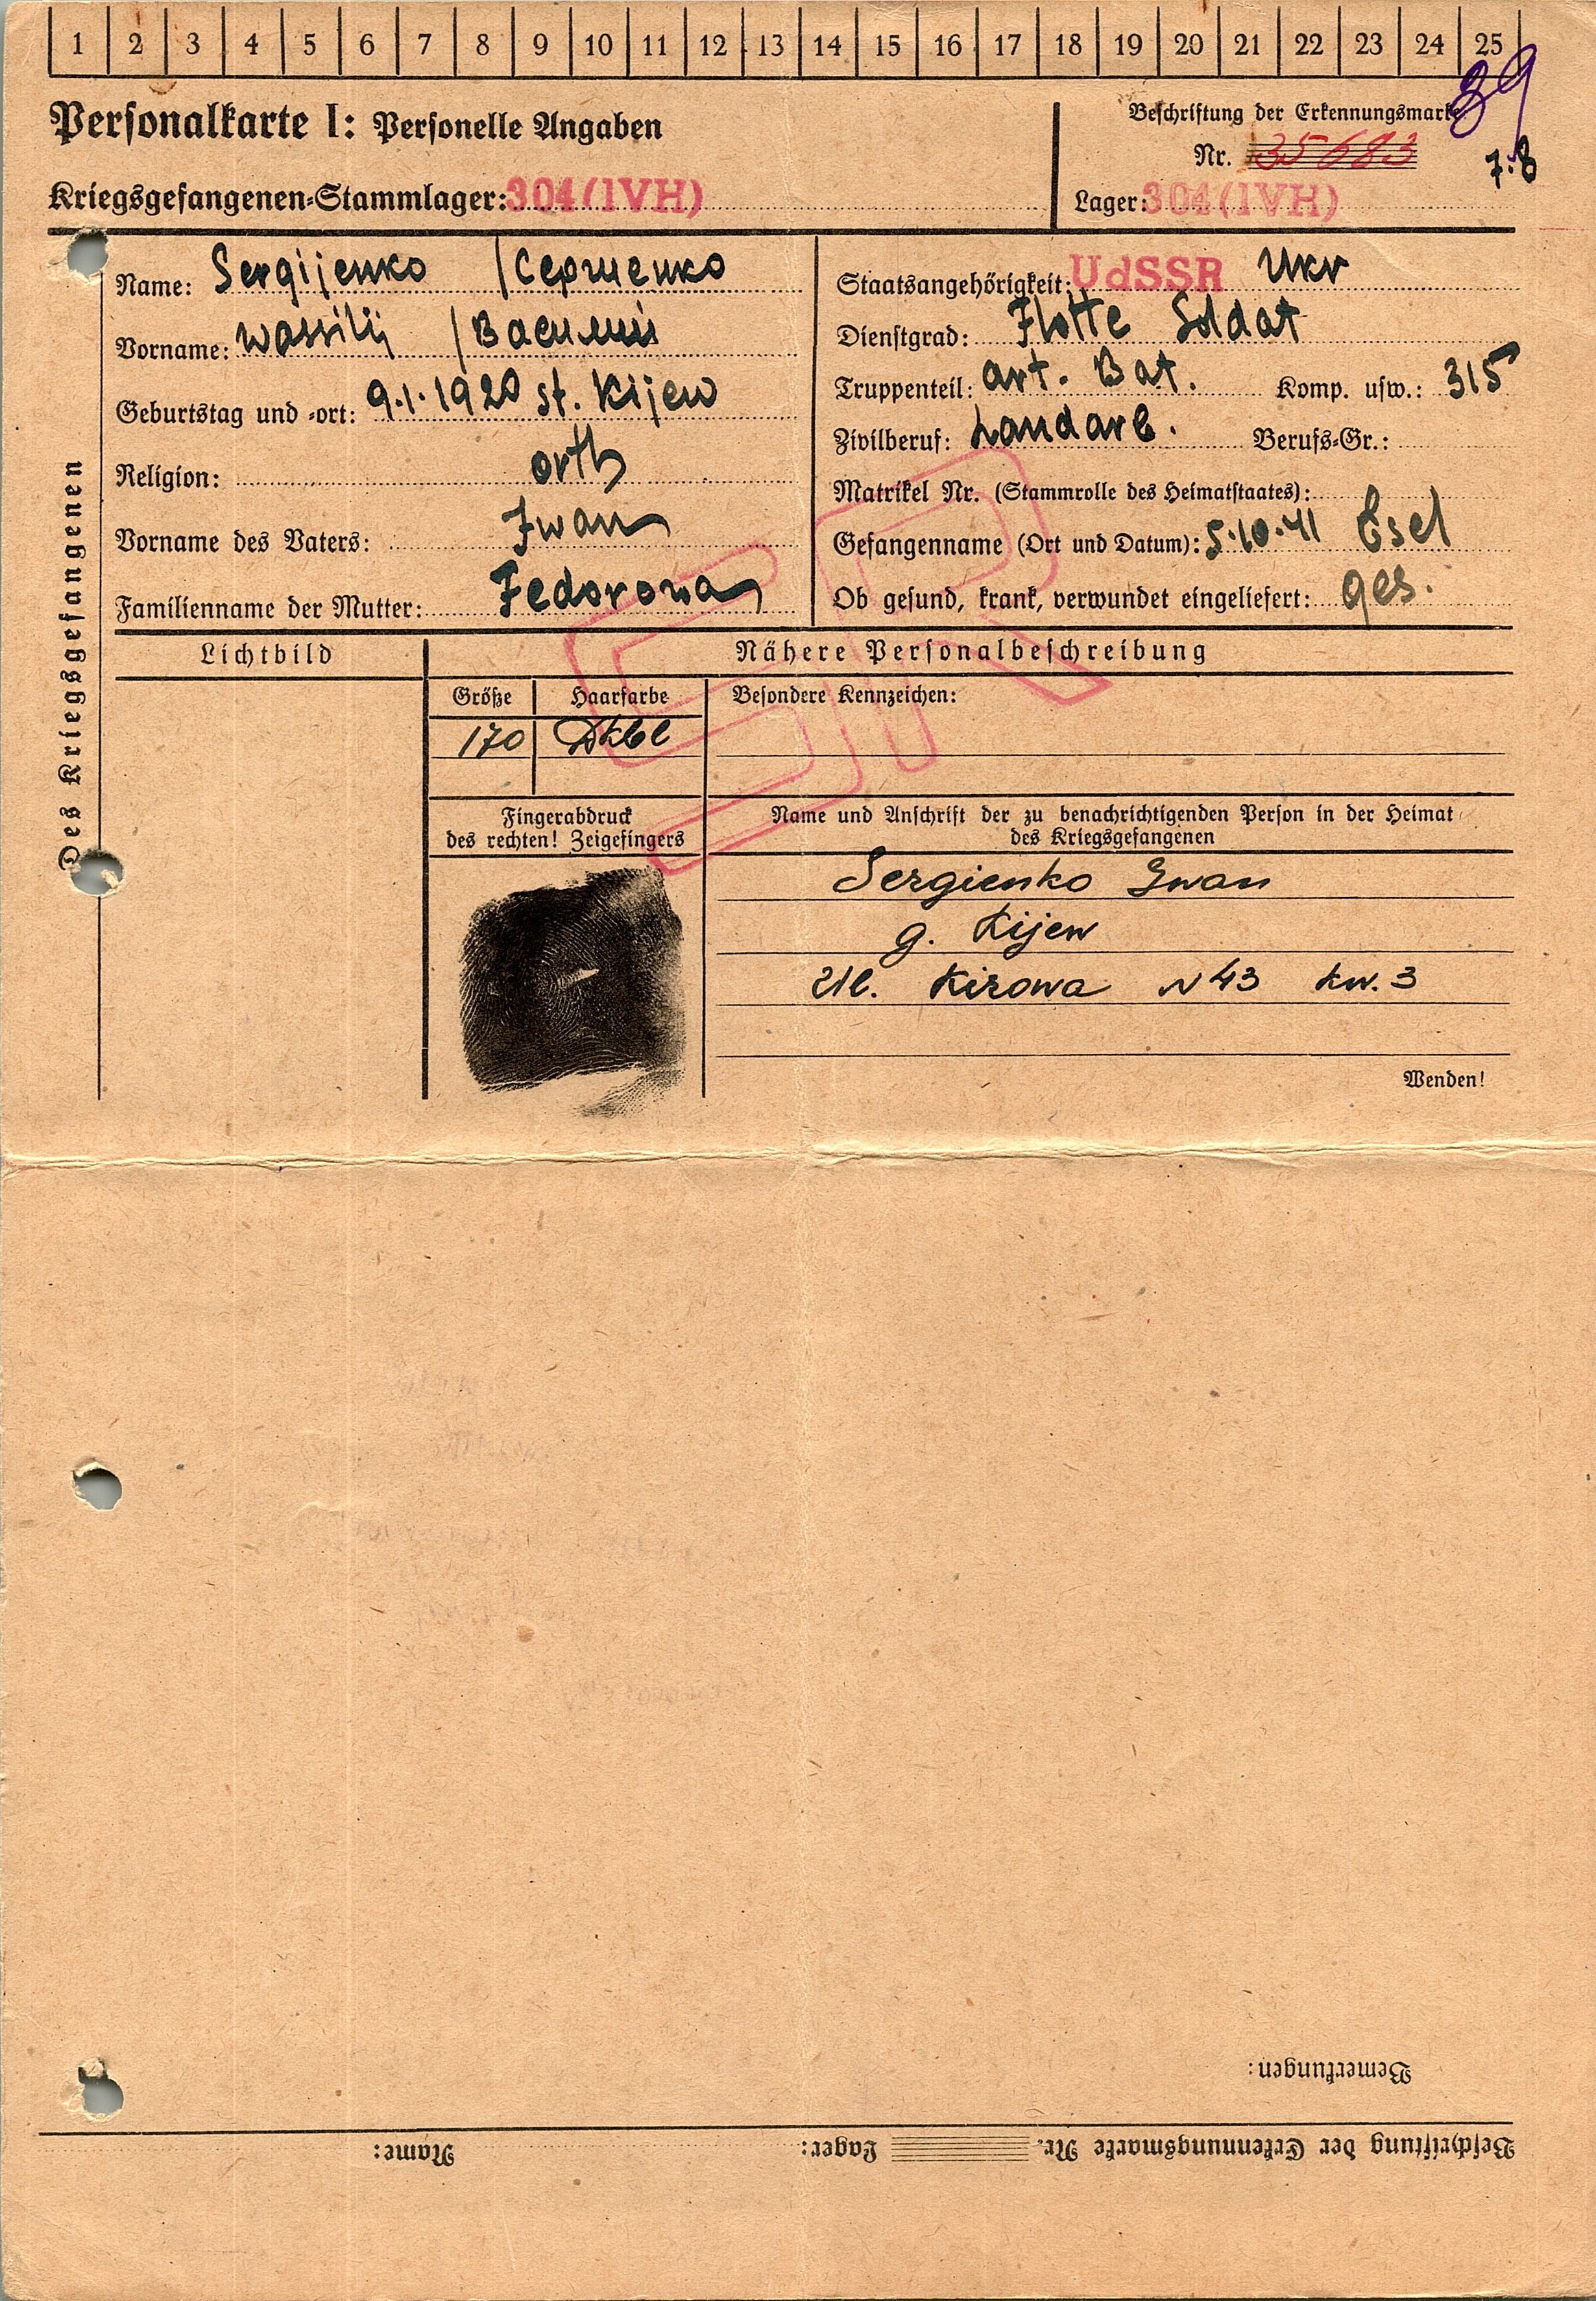 1 2 3 4 5 6 7 8 9 10 11 12 13 14 15 16 17 18 19 20 21 22 23 24 25
39
Personalkarte I: Personelle Angaben
Beschriftung der Erkennungsmarke
Nr. 35683
7.8
Kriegsgefangenen-Stammlager: 304 (IVH)
Lager: 304 (IVH)
Des Kriegsgefangenen
Name: Sergijenko / Сергиенко
Vorname: Wassilij / Василий
Geburtstag und -ort: 9.1.1920 st. Kijew
Religion: orth
Vorname des Vaters: Iwan
Familienname der Mutter: Fedorowa
Staatsangehörigkeit: UdSSR Ukr
Dienstgrad: Flotte Soldat
Truppenteil: Art. Bat. Komp. usw.: 315
Zivilberuf: Landarb. Berufs-Gr.:
Matrikel Nr. (Stammrolle des Heimatstaates):
Gefangennahme (Ort und Datum): 5.10.41 Esel
Ob gesund, krank, verwundet eingeliefert: ges.
Lichtbild
Nähere Personalbeschreibung
Größe Haarfarbe Besondere Kennzeichen:
170 Dkbl
Fingerabdruck
des rechten! Zeigefingers
Name und Anschrift der zu benachrichtigenden Person in der Heimat
des Kriegsgefangenen
Sergienko Iwan
g. Kijew
Ul. Kirowa N 43 kw. 3
Wenden!
Bemerkungen:
Beschriftung der Erkennungsmarke Nr. Lager: Name: